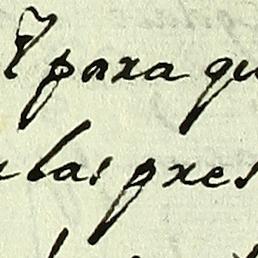 Y para qu
las pres